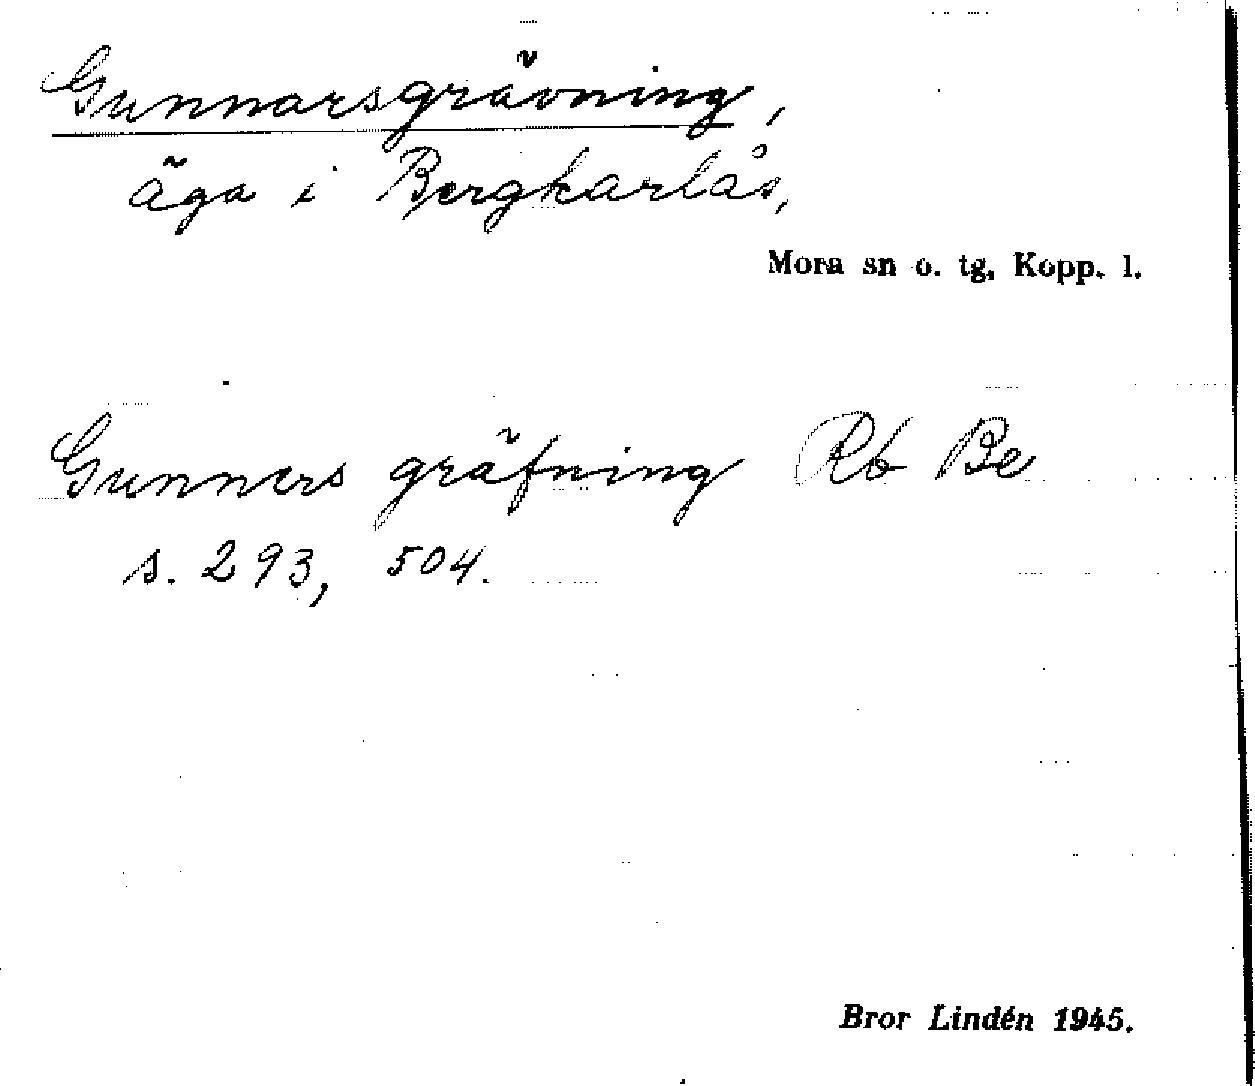 Gunnarsgrävning,
äga i Bergkarlås,
Mora sn o. tg. Kopp. l.
Gunners gräfning Rb Be
s. 293, 504.
Bror Lindén 1945.